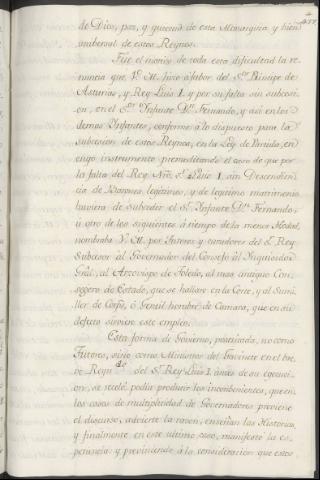 de Dios, paz, y quietud de esta Monarquia y bien
universal de estos Reynos.
Fue el motivo de toda esta dificultad la re
nuncia que V. M. hizo à favor del S.or Principe de
Asturias, y Rey Luis I. y por su falta sin subcesi
on, en el S.or Infante D.n Fernando, y asi en los
demas Infantes, conforme à lo dispuesto para la
subcesion de estos Reynos, en la Ley de Partida, en
cuyo instrumento premeditando el caso de que por
la falta del Rey Nro. S.r Luis I. sin Descenden
cia de Varones, legitimos, y de legitimo matrimonio
huviera de Subceder el S.r Infante D.n Fernando,
ù otro de los siguientes à tiempo de la menor hedad,
nombraba V. M. por Tutores y curadores del S.r Rey
Subcesor al Governador del Consejo al Inquisidor
Gral, al Arzovispo de Toledo, al mas antiguo Con
segero de Estado, que se hallare en la Corte, y al Sumi
ller de Corps, ò Gentil hombre de Camara, que en su
defecto sirviere este empleo.
Esta forma de Govierno, practicada, no como
Tutores, sino como Ministros del Gavinete en el bre
ve Reyn.do del S.r Rey Luis I. antes de su egecuci
on, se receló podia producir los inconbenientes, que en
los casos de multiplicidad de Governadores previene
el discurso, advierte la razon, enseñan las Historias,
y finalmente en este ultimo caso, manifestó la es
periencia y previniendo à la consideracion que estos